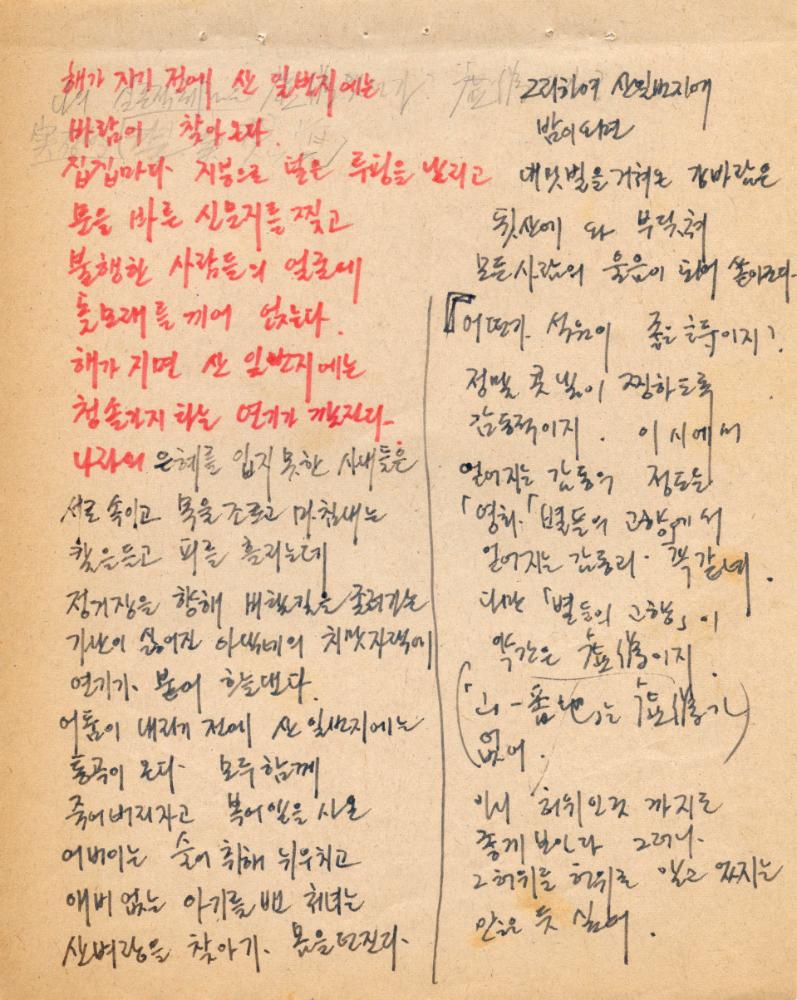 해가 지기 전에 산 일번지에는
바람이 찾아온다.
집집마다 지붕으로 덮은 루핑을 날리고
문을 바른 신문지를 찢고
불행한 사람들의 얼굴에
돌모래를 끼어 얹는다.
해가 지면 산 일번지에는
청솔가지 타는 연기가 깔린다.
나라의 은혜를 입지 못한 사내들은
서로 속이고 목을 조르고 마침내는
칼을 들고 피를 흘리는데
정거장을 향해 비탈길을 굴러가는
가난이 싫어진 아낙네의 치맛자락에
연기가 붙어 흐늘댄다.
어둠이 내리기 전에 산 일번지에는
통곡이 온다. 모두 함께
죽어버리자고 복어알을 사온
어버이는 술이 취해 뉘우치고
애비 없는 아기를 밴 처녀는
산벼랑을 찾아가 몸을 던진다.
그리하여 산일번지에
밤이 되면
대밋벌을 거쳐온 강바람은
뒷산에 와 부딪쳐
모든 사람의 울음이 되어 쏟아진다.
『어떤가. 석윤이 좋은 놈이지?
정말 콧날이 찡하도록
감동적이지. 이 시에서
얻어지는 감동의 정도는
「영화.「별들의 고향」에서
얻어지는 감동과 꼭 같네.
다만 「별들의 고향」이
약간은 虛僞이지.
(「山一番地」는 虛僞가
없어.)
역시 허위인것 까지도
좋게 보인다 그러나.
그 허위를 허위로 알고 있지는
않은 듯 싶어.